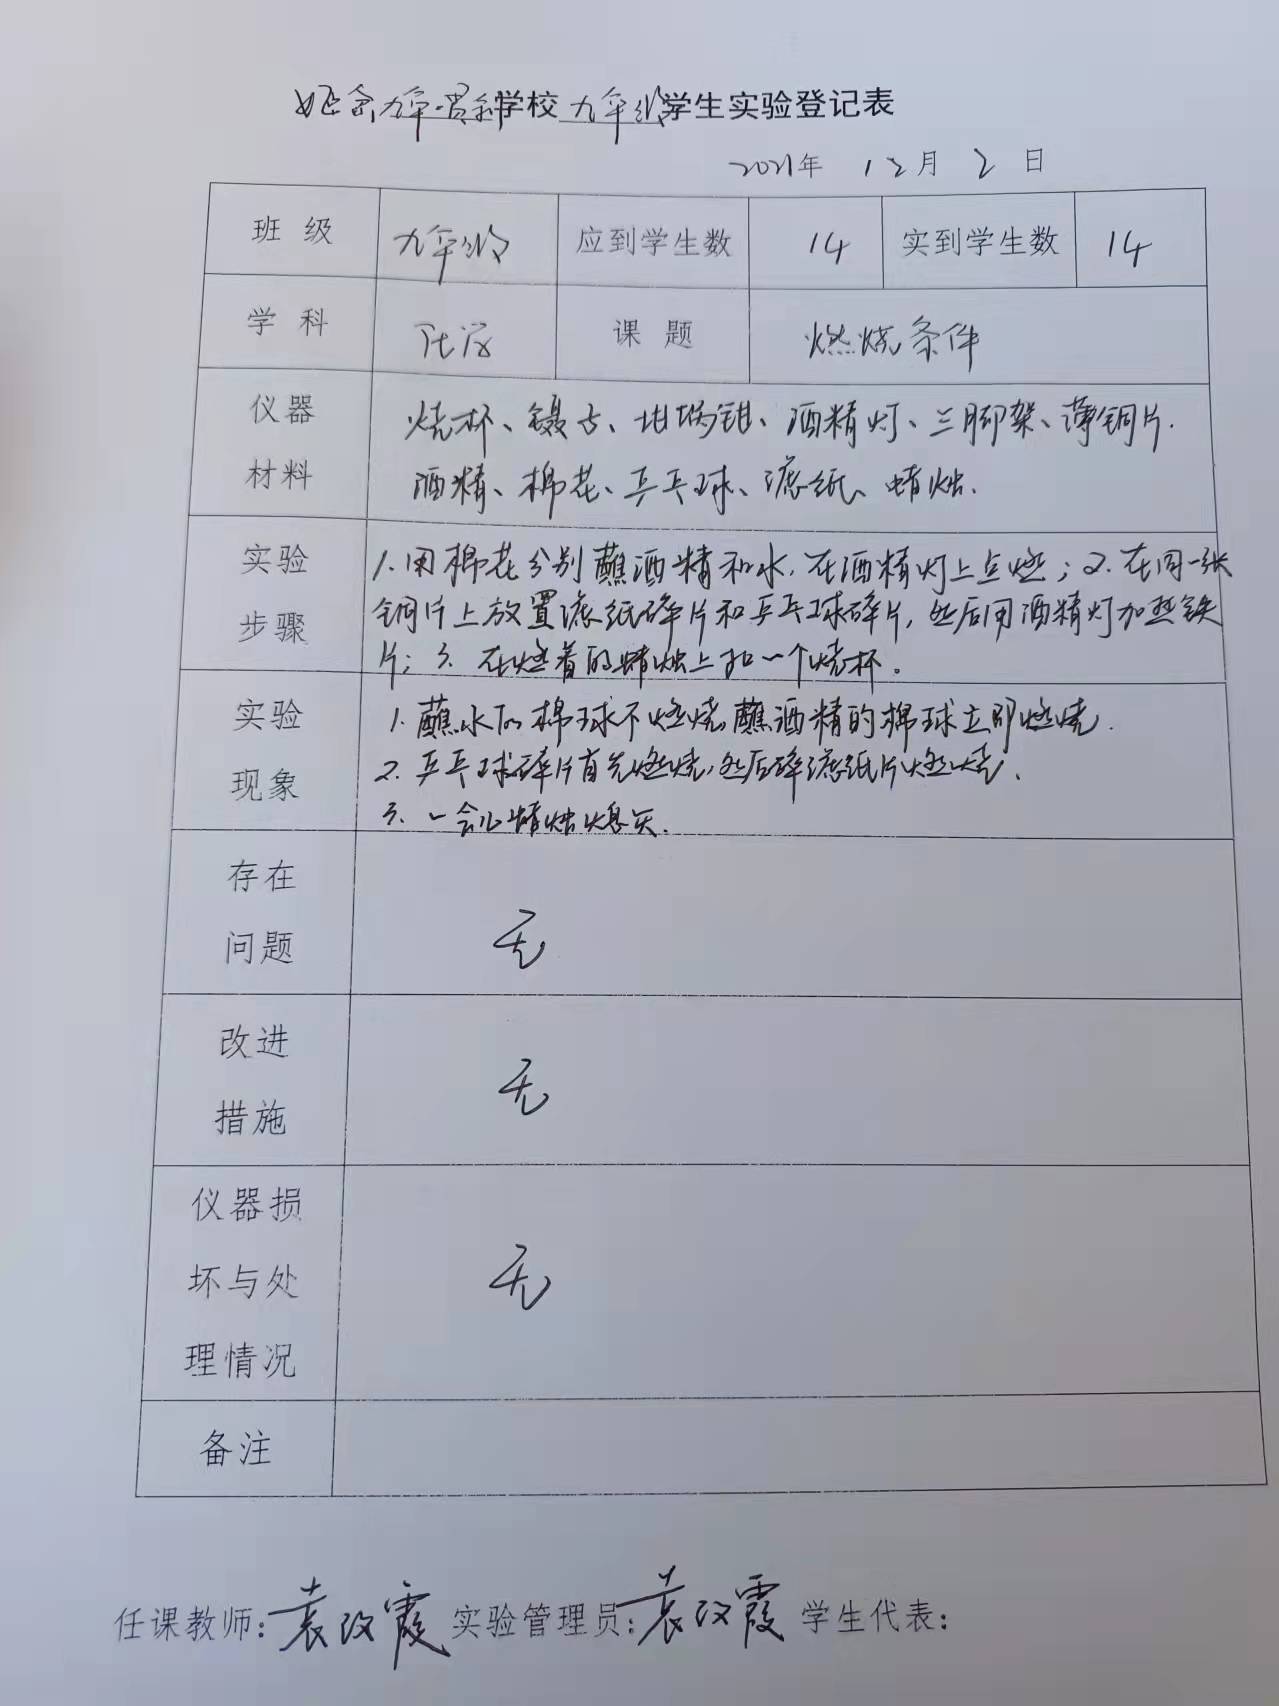 九年一贯制学校九年级学生实验登记表
2021年 12月 2日
班级 九年级 应到学生数 14 实到学生数 14
学科 化学 课题 燃烧条件
仪器材料
烧杯、镊子、坩埚钳、酒精灯、三脚架、薄铜片.
酒精、棉花、乒乓球、滤纸、蜡烛.
实验步骤
1.用棉花分别蘸酒精和水,在酒精灯上点燃;2.在同一张
铜片上放置滤纸碎片和乒乓球碎片,然后用酒精灯加热铁
片;3.在燃着的蜡烛上扣一个烧杯。
实验现象
1.蘸水的棉球不燃烧,蘸酒精的棉球立即燃烧.
2.乒乓球碎片首先燃烧,然后碎滤纸片燃烧.
3.一会儿蜡烛熄灭.
存在问题
无
改进措施
无
仪器损坏与处理情况
无
备注
任课教师:袁改霞 实验管理员:袁改霞 学生代表: